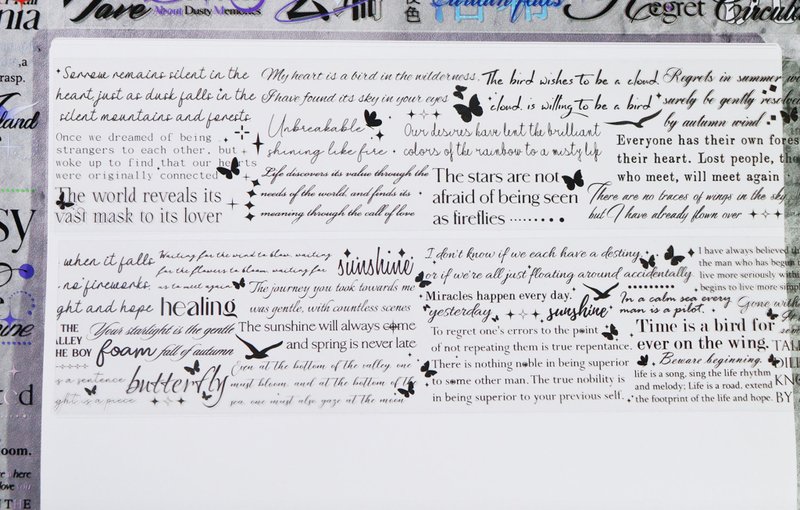 nia
Have
About Dusty Memories
色
Curtain falls
Regret
Circula
,a
rasp.
land
sy
ine
ed
d
oom.
here
love you
THE
Sorrow remains silent in the
heart just as dusk falls in the
silent mountains and forests
Once we dreamed of being
strangers to each other, but
woke up to find that our hearts
were originally connected
The world reveals its
vast mask to its lover
My heart is a bird in the wilderness.
I have found its sky in your eyes
Unbreakable
shining like fire
Life discovers its value through the
needs of the world, and finds its
meaning through the call of love
The bird wishes to be a cloud.
cloud is willing to be a bird
Our desires have lent the brilliant
colors of the rainbow to a misty life
The stars are not
afraid of being seen
as fireflies
Regrets in summer w
surely be gently resolved
by autumn wind
Everyone has their own fores
their heart. Lost people, th
who meet, will meet again
There are no traces of wings in the sky
but I have already flown over
when it falls
no fireworks,
ght and hope
Waiting for the wind to blow, waiting
for the flowers to bloom, waiting for
us to meet again
healing
sunshine
The journey you took towards me
was gentle, with countless scenes
THE
ALLEY
HE BOY
Your starlight is the gentle
foam
fall of autumn
The sunshine will always come
and spring is never late
is a sentence
ght is a piece
butterfly
Even at the bottom of the valley, one
must bloom, and at the bottom of the
sea, one must also gaze at the moon
I don't know if we each have a destiny
or if we're all just floating around accidentally
Miracles happen every day.
yesterday
sunshine
To regret one's errors to the point
of not repeating them is true repentance.
There is nothing noble in being superior
to some other man. The true nobility is
in being superior to your previous self.
I have always believed th
the man who has begun t
live more seriously within
begins to live more simpl
In a calm sea every
man is a pilot.
Gone with
Time is a bird for
ever on the wing.
Beware beginning.
life is a song, sing the life rhythm
and melody; Life is a road, extend
the footprint of the life and hope.
TAL
DIL
KNO
BY